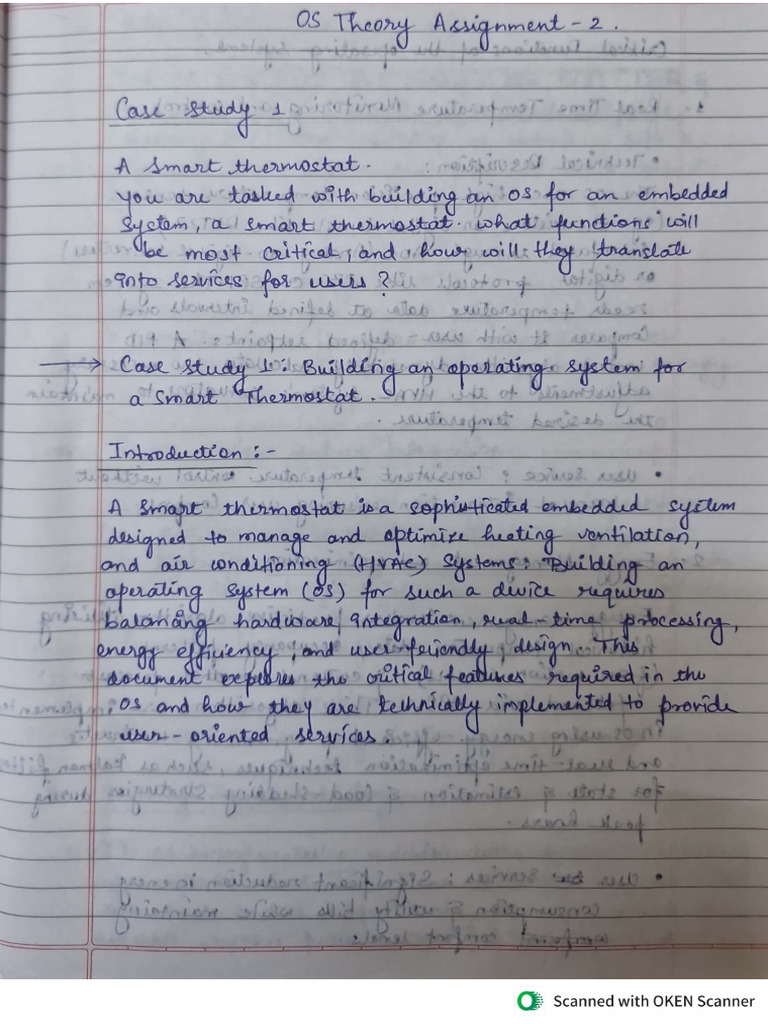 OS Theory Assignment - 2.
Case Study 1
A Smart thermostat.
you are tasked with building an OS for an embedded
system, a smart thermostat. what functions will
be most critical, and how will they translate
into services for users?
→ Case Study 1: Building an operating system for
a Smart Thermostat.
Introduction :-
A Smart thermostat is a sophisticated embedded system
designed to manage and optimize heating ventilation,
and air conditioning (HVAC) Systems. Building an
operating system (OS) for such a device requires
balancing hardware integration, real-time processing,
energy efficiency, and user-friendly design. This
document explores the critical features required in the
OS and how they are technically implemented to provide
user-oriented services.
Scanned with OKEN Scanner